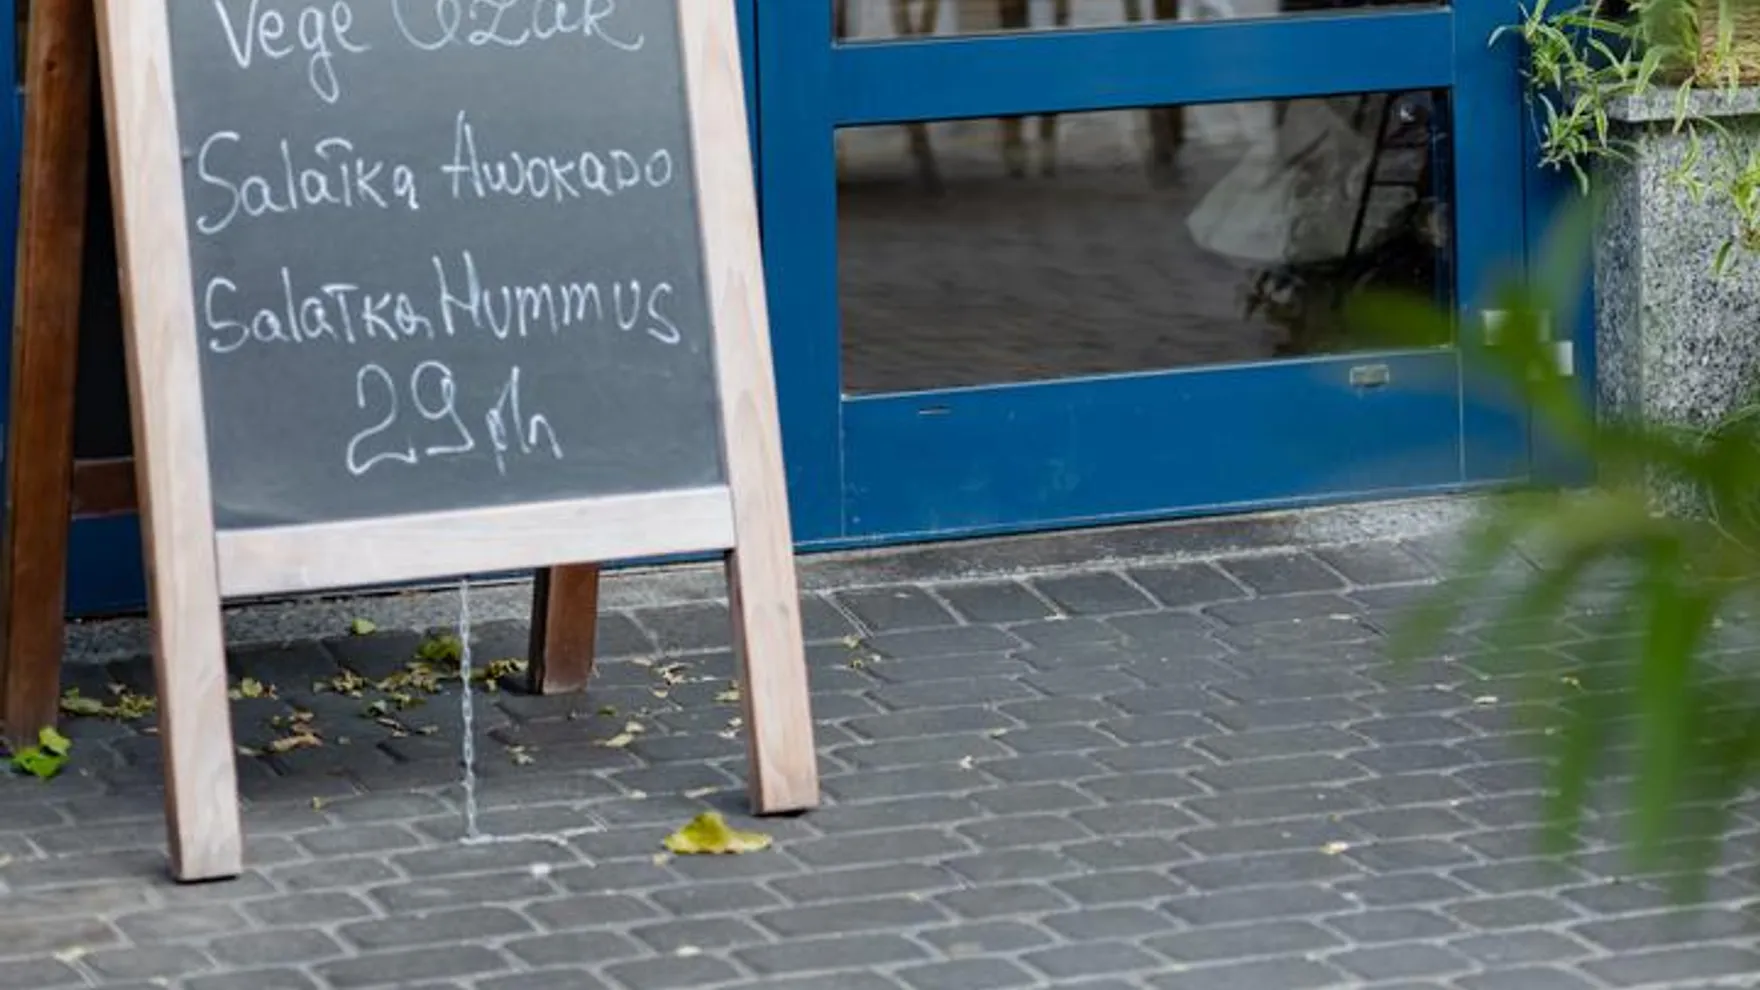 Vege Ozak
Sałatka Awokado
Sałatka Hummus
29 pln